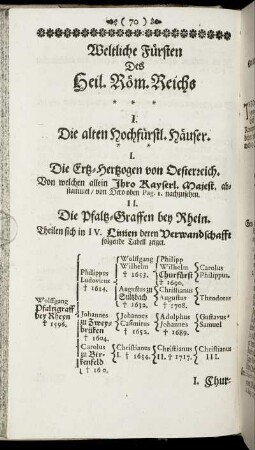 ( 70 )
Weltliche Fürsten
Des
Heil. Röm. Reichs
* * *
I.
Die alten Hochfürstl. Häuser.
* *
I.
Die Ertz-Hertzogen von Oesterreich.
Von welchen allein Ihro Kayserl. Majest. ab-
stammet / von Dero oben Pag. 1. nachzusehen.
II.
Die Pfaltz-Graffen bey Rhein.
Theilen sich in IV. Linien deren Verwandschafft
folgende Tabell zeiget.
Wolffgang
Pfaltzgraff
bey Rheyn
† 1596.
Philippus
Ludovicus
† 1614.
Wolffgang
Wilhelm
† 1653.
Philipp
Wilhelm
Churfürst
† 1690.
Carolus
Philippus.
Augustus zu
Sultzbach
† 1632.
Christianus
Augustus
† 1708.
Theodorus
Johannes
zu Zweys
brücken
† 1604.
Johannes
Casimirus
† 1652.
Adolphus
Johannes
† 1689.
Gustavus
Samuel
Carolus
zu Bir-
kenfeld
Christianus
I. † 1654.
Christianus
II. † 1717.
Christianus
III.
I. Chur-